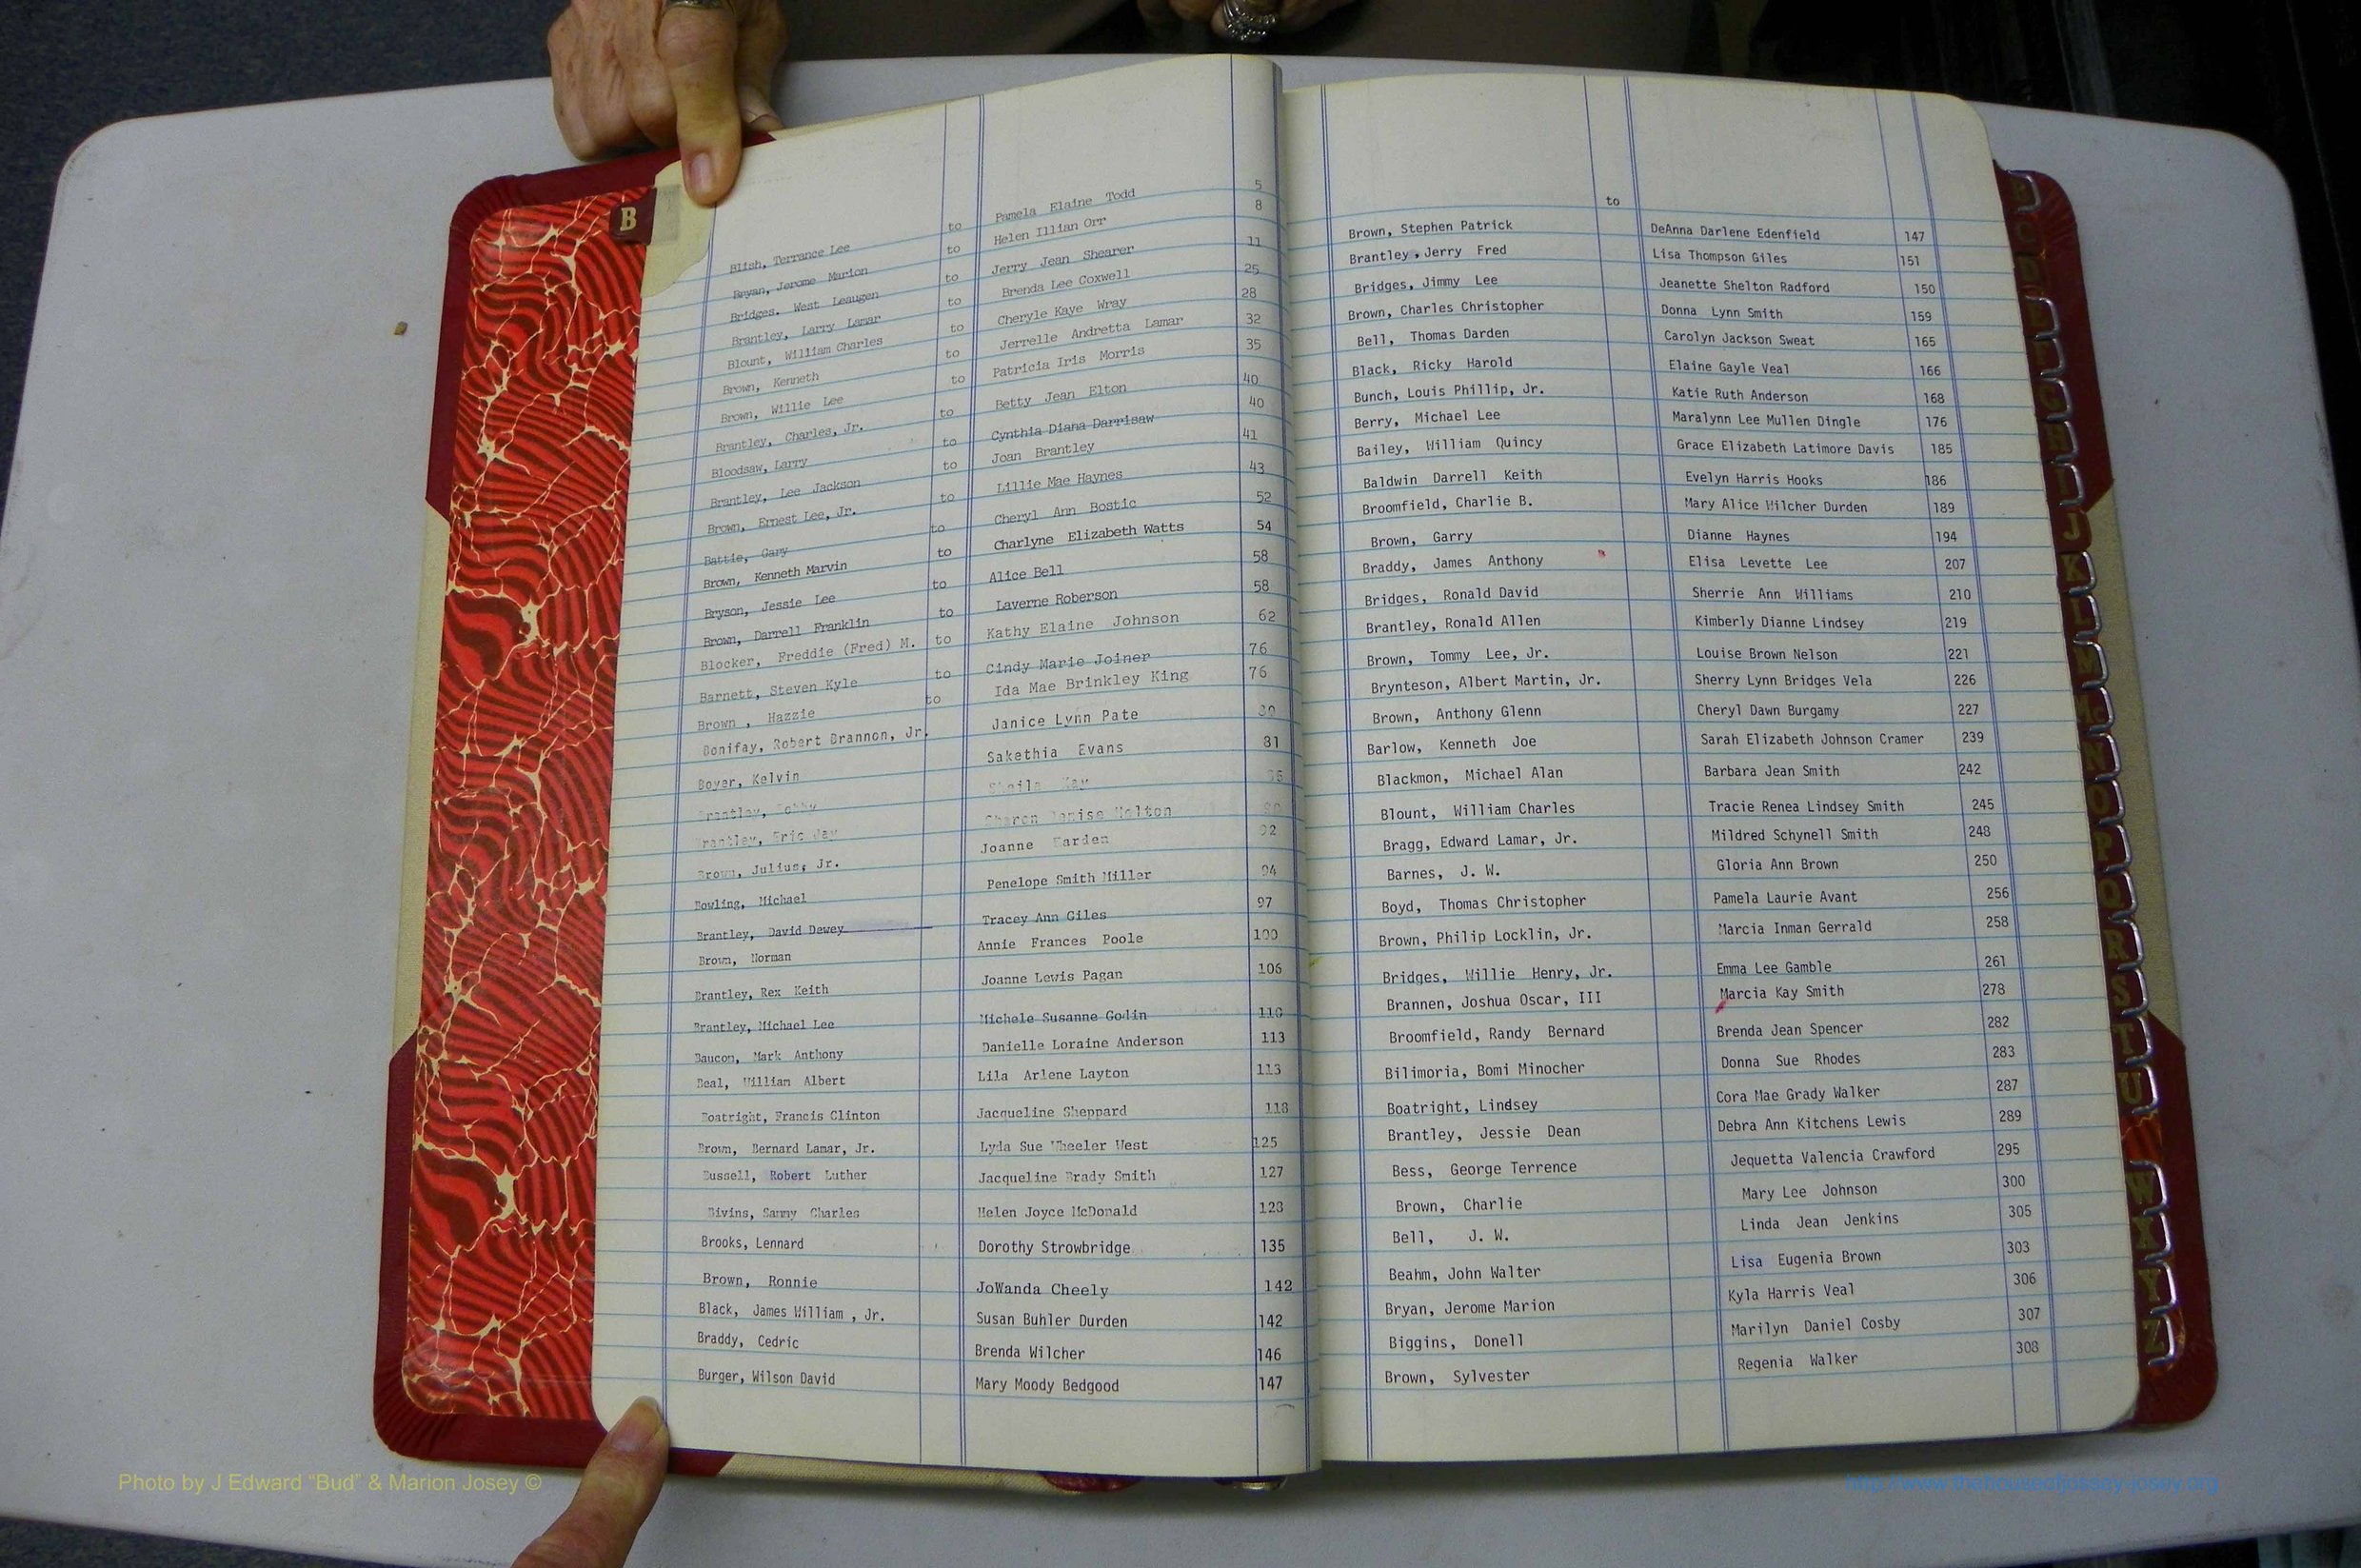 B
Blish, Terrance Lee to Pamela Elaine Todd 5
Bryan, Jerome Marion to Helen Illian Orr 8
Bridges. West Leaugen to Jerry Jean Shearer 11
Brantley, Larry Lamar to Brenda Lee Coxwell 25
Blount, William Charles to Cheryle Kaye Wray 28
Brown, Kenneth to Jerrelle Andretta Lamar 32
Brown, Willie Lee to Patricia Iris Morris 35
Brantley, Charles, Jr. to Betty Jean Elton 40
Bloodsaw, Larry to Cynthia Diana Darrisaw 40
Brantley, Lee Jackson to Joan Brantley 41
Brown, Ernest Lee, Jr. to Lillie Mae Haynes 43
Battie, Gary to Cheryl Ann Bostic 52
Brown, Kenneth Marvin to Charlyne Elizabeth Watts 54
Bryson, Jessie Lee to Alice Bell 58
Brown, Darrell Franklin to Laverne Roberson 58
Blocker, Freddie (Fred) M. to Kathy Elaine Johnson 62
Barnett, Steven Kyle to Cindy Marie Joiner 76
Brown , Hazzie to Ida Mae Brinkley King 76
Bonifay, Robert Brannon, Jr. Janice Lynn Pate 80
Boyer, Kelvin Sakethia Evans 81
Brantley, Bobby Sheila Kay
Brantley, Eric Jay Sharon Denise Holton
Brown, Julius, Jr. Joanne Harden 92
Bowling, Michael Penelope Smith Miller 94
Brantley, David Dewey Tracey Ann Giles 97
Brown, Norman Annie Frances Poole 100
Brantley, Rex Keith Joanne Lewis Pagan 106
Brantley, Michael Lee Michele Susanne Godin 110
Baucon, Mark Anthony Danielle Loraine Anderson 113
Beal, William Albert Lila Arlene Layton 113
Boatright, Francis Clinton Jacqueline Sheppard 118
Brown, Bernard Lamar, Jr. Lyda Sue Wheeler West 125
Bussell, Robert Luther Jacqueline Brady Smith 127
Bivins, Sammy Charles Helen Joyce McDonald 128
Brooks, Lennard Dorothy Strowbridge 135
Brown, Ronnie JoWanda Cheely 142
Black, James William , Jr. Susan Buhler Durden 142
Braddy, Cedric Brenda Wilcher 146
Burger, Wilson David Mary Moody Bedgood 147
to
Brown, Stephen Patrick DeAnna Darlene Edenfield 147
Brantley, Jerry Fred Lisa Thompson Giles 151
Bridges, Jimmy Lee Jeanette Shelton Radford 150
Brown, Charles Christopher Donna Lynn Smith 159
Bell, Thomas Darden Carolyn Jackson Sweat 165
Black, Ricky Harold Elaine Gayle Veal 166
Bunch, Louis Phillip, Jr. Katie Ruth Anderson 168
Berry, Michael Lee Maralynn Lee Mullen Dingle 176
Bailey, William Quincy Grace Elizabeth Latimore Davis 185
Baldwin Darrell Keith Evelyn Harris Hooks 186
Broomfield, Charlie B. Mary Alice Wilcher Durden 189
Brown, Garry Dianne Haynes 194
Braddy, James Anthony Elisa Levette Lee 207
Bridges, Ronald David Sherrie Ann Williams 210
Brantley, Ronald Allen Kimberly Dianne Lindsey 219
Brown, Tommy Lee, Jr. Louise Brown Nelson 221
Brynteson, Albert Martin, Jr. Sherry Lynn Bridges Vela 226
Brown, Anthony Glenn Cheryl Dawn Burgamy 227
Barlow, Kenneth Joe Sarah Elizabeth Johnson Cramer 239
Blackmon, Michael Alan Barbara Jean Smith 242
Blount, William Charles Tracie Renea Lindsey Smith 245
Bragg, Edward Lamar, Jr. Mildred Schynell Smith 248
Barnes, J. W. Gloria Ann Brown 250
Boyd, Thomas Christopher Pamela Laurie Avant 256
Brown, Philip Locklin, Jr. Marcia Inman Gerrald 258
Bridges, Willie Henry, Jr. Emma Lee Gamble 261
Brannen, Joshua Oscar, III Marcia Kay Smith 278
Broomfield, Randy Bernard Brenda Jean Spencer 282
Bilimoria, Bomi Minocher Donna Sue Rhodes 283
Boatright, Lindsey Cora Mae Grady Walker 287
Brantley, Jessie Dean Debra Ann Kitchens Lewis 289
Bess, George Terrence Jequetta Valencia Crawford 295
Brown, Charlie Mary Lee Johnson 300
Bell, J. W. Linda Jean Jenkins 305
Beahm, John Walter Lisa Eugenia Brown 303
Bryan, Jerome Marion Kyla Harris Veal 306
Biggins, Donell Marilyn Daniel Cosby 307
Brown, Sylvester Regenia Walker 308
J
K
L
M
Mc
N
O
P
Q
R
S
T
U
W
X
Y
Z
Photo by J Edward "Bud" & Marion Josey ©
http://www.thehouseofjossey-josey.org